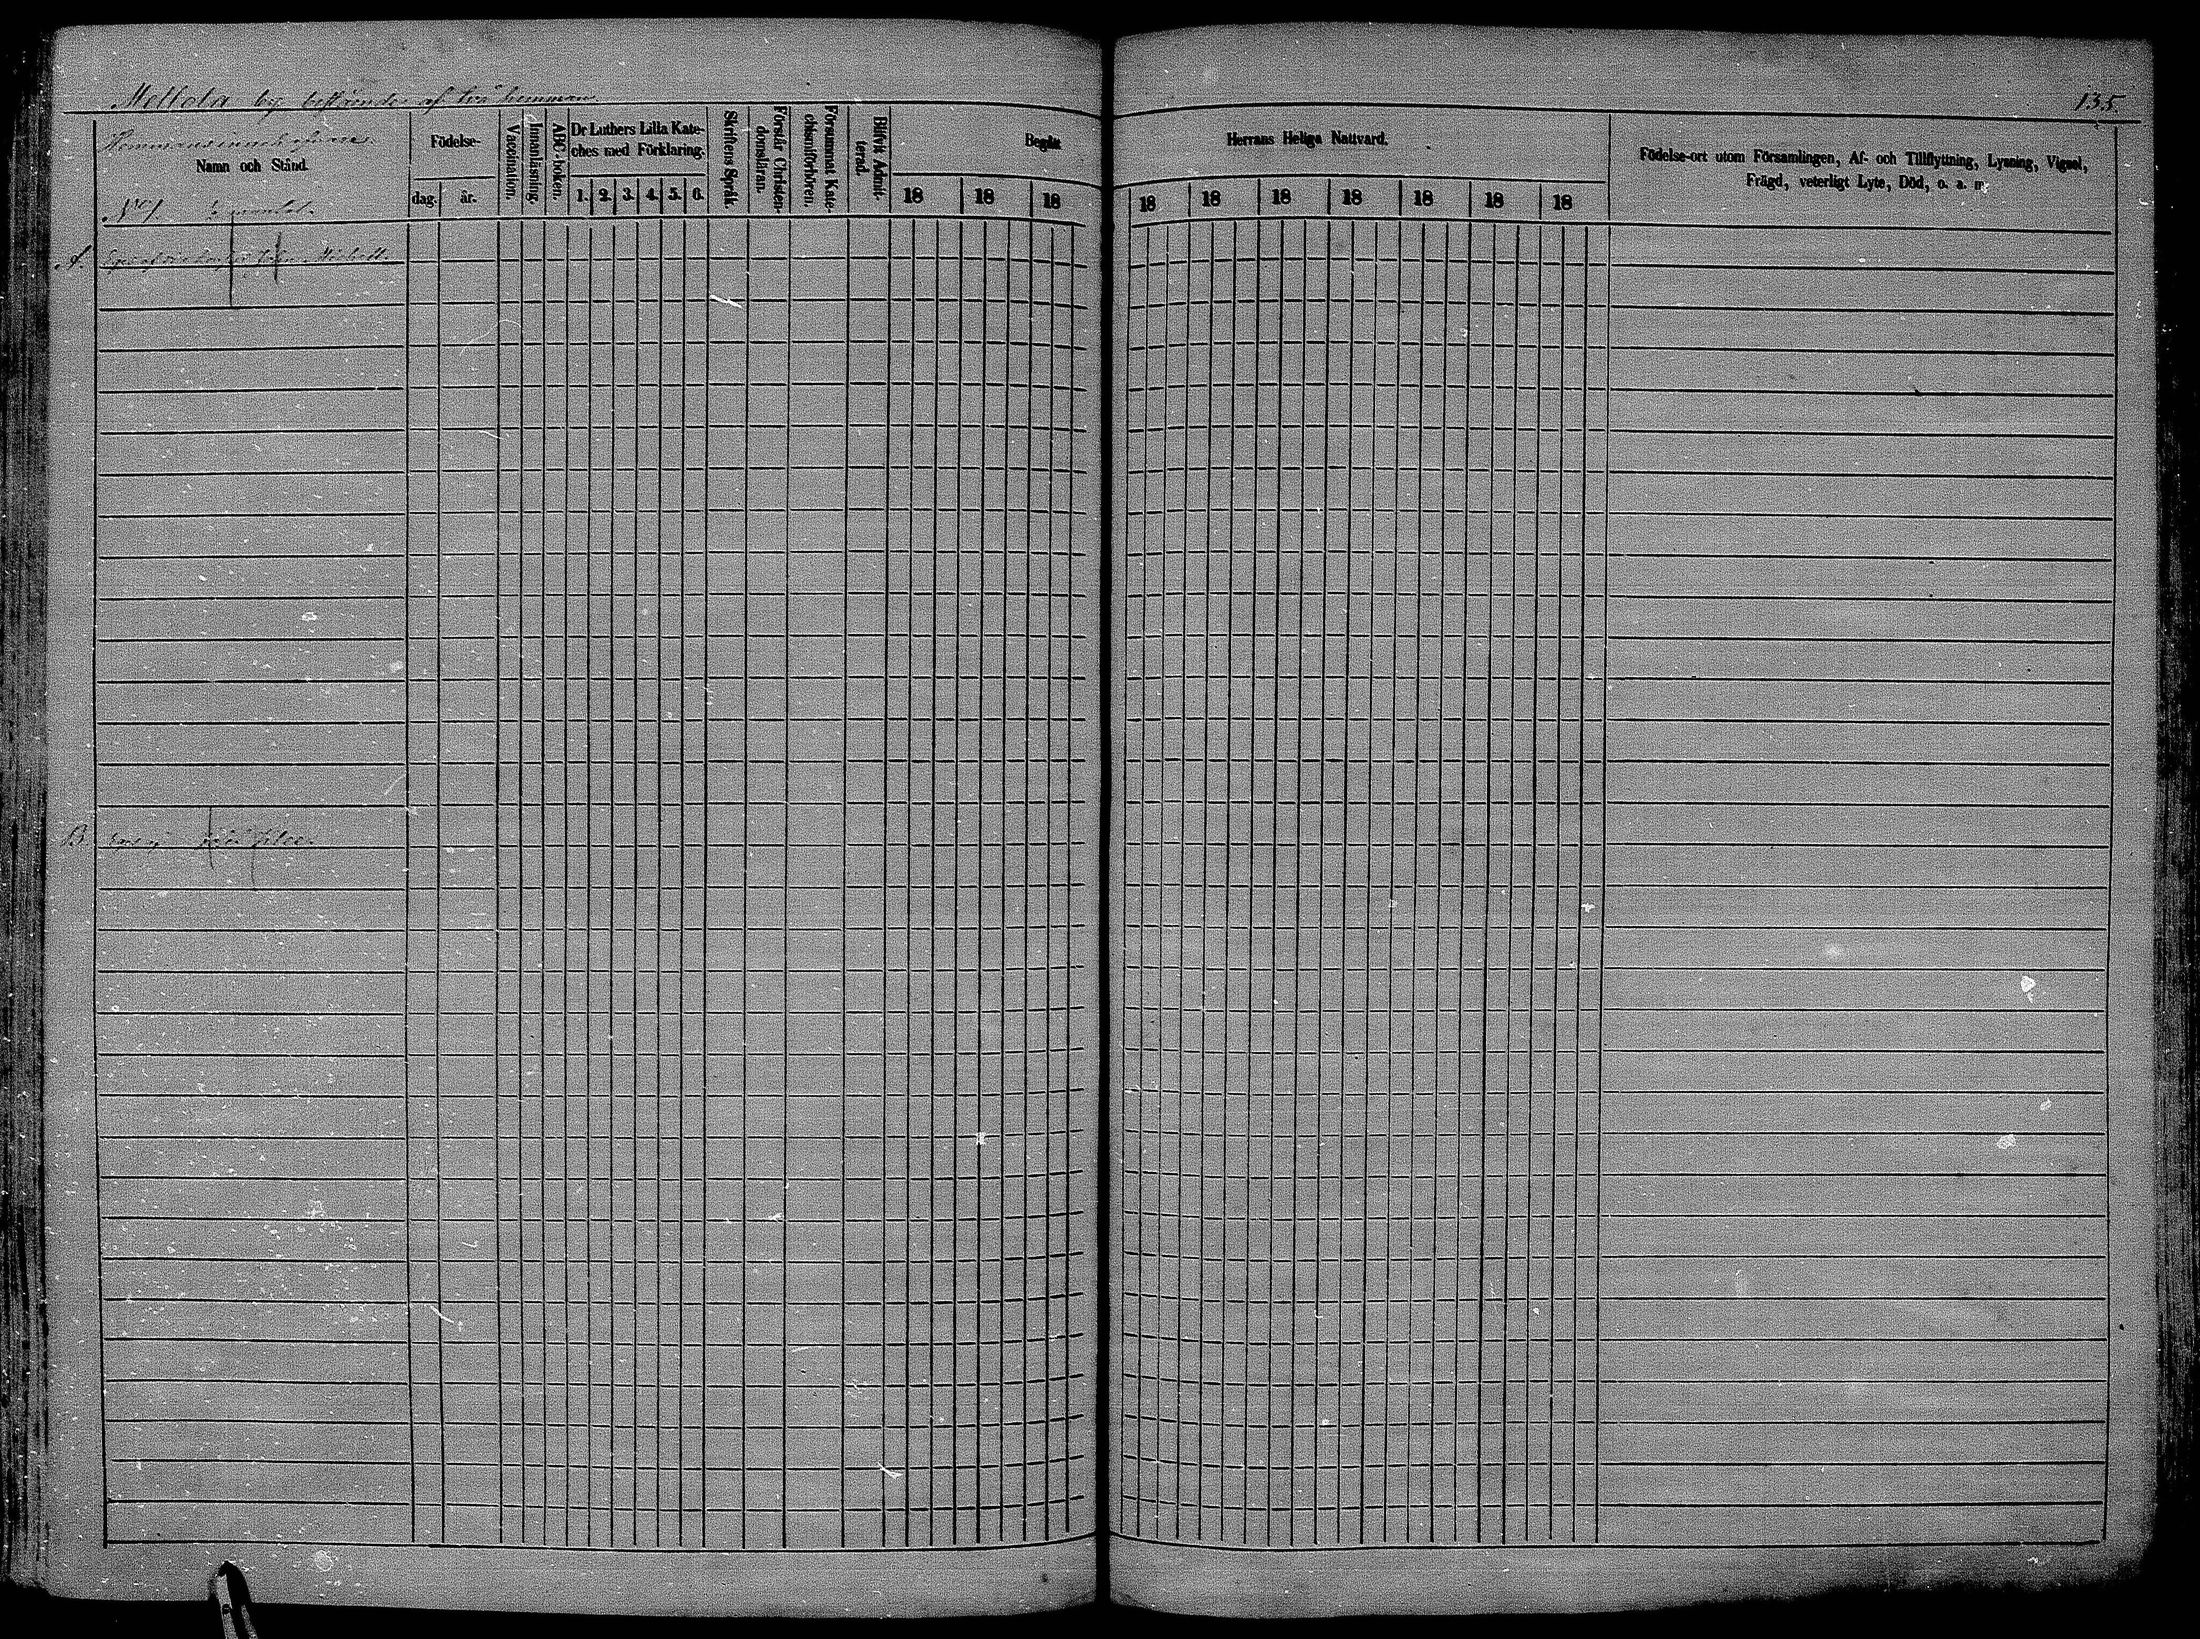 Mellola by bestående af två hemman
135
Namn och Stånd.
Födelse-
dag.
år.
Vaccination.
Innanläsning.
ABC-boken.
Dr Luthers Lilla Kate-
ches med Förklaring.
1. 2. 3. 4. 5. 6.
Skriftens Språk.
Förstår Christen-
domsläran.
Försummat Kate-
chismiförhören.
Blifvit Admit-
terad.
Begått
18 18 18
Herrans Heliga Nattvard.
18 18 18 18 18 18 18
Födelse-ort utom Församlingen, Af- och Tillflyttning, Lysning, Vigsel,
Frägd, veterligt Lyte, Död, o. a. m.
No 1
A.
B.